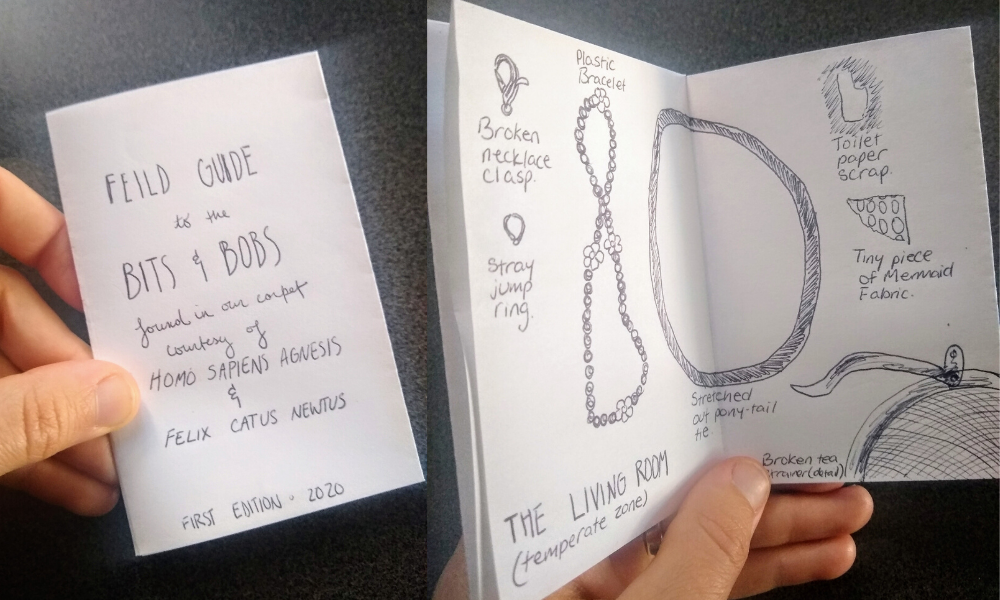 FEILD GUIDE
to the
BITS & BOBS
found in our carpet
courtesy of
HOMO SAPIENS AGNESIS
&
FELIX CATUS NEWTUS
FIRST EDITION · 2020
Broken
necklace
clasp.
Stray
jump
ring.
Plastic
Bracelet
THE LIVING ROOM
(temperate zone)
Stretched
out pony-tail
tie
Toilet
paper
scrap.
Tiny piece
of Mermaid
Fabric.
Broken tea
strainer (detail)